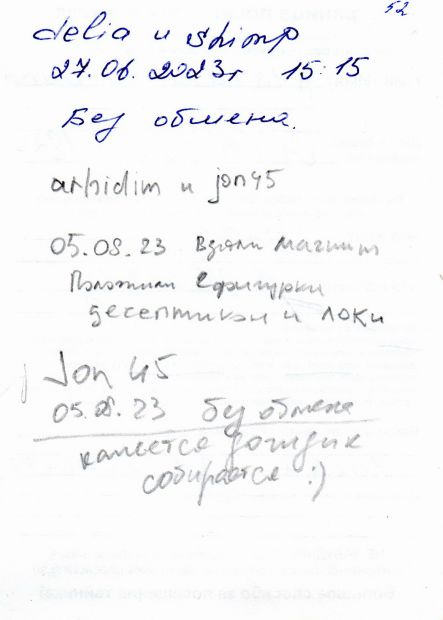 52
delia и shimp
27.06.2023г 15:15
Без обмена.
arhidim и jon45
05.08.23 Взяли магнит
Положили 2 фигурки
десептикон и локи
Jon 45
05.08.23 без обмена
кажется дождик
собирается :)